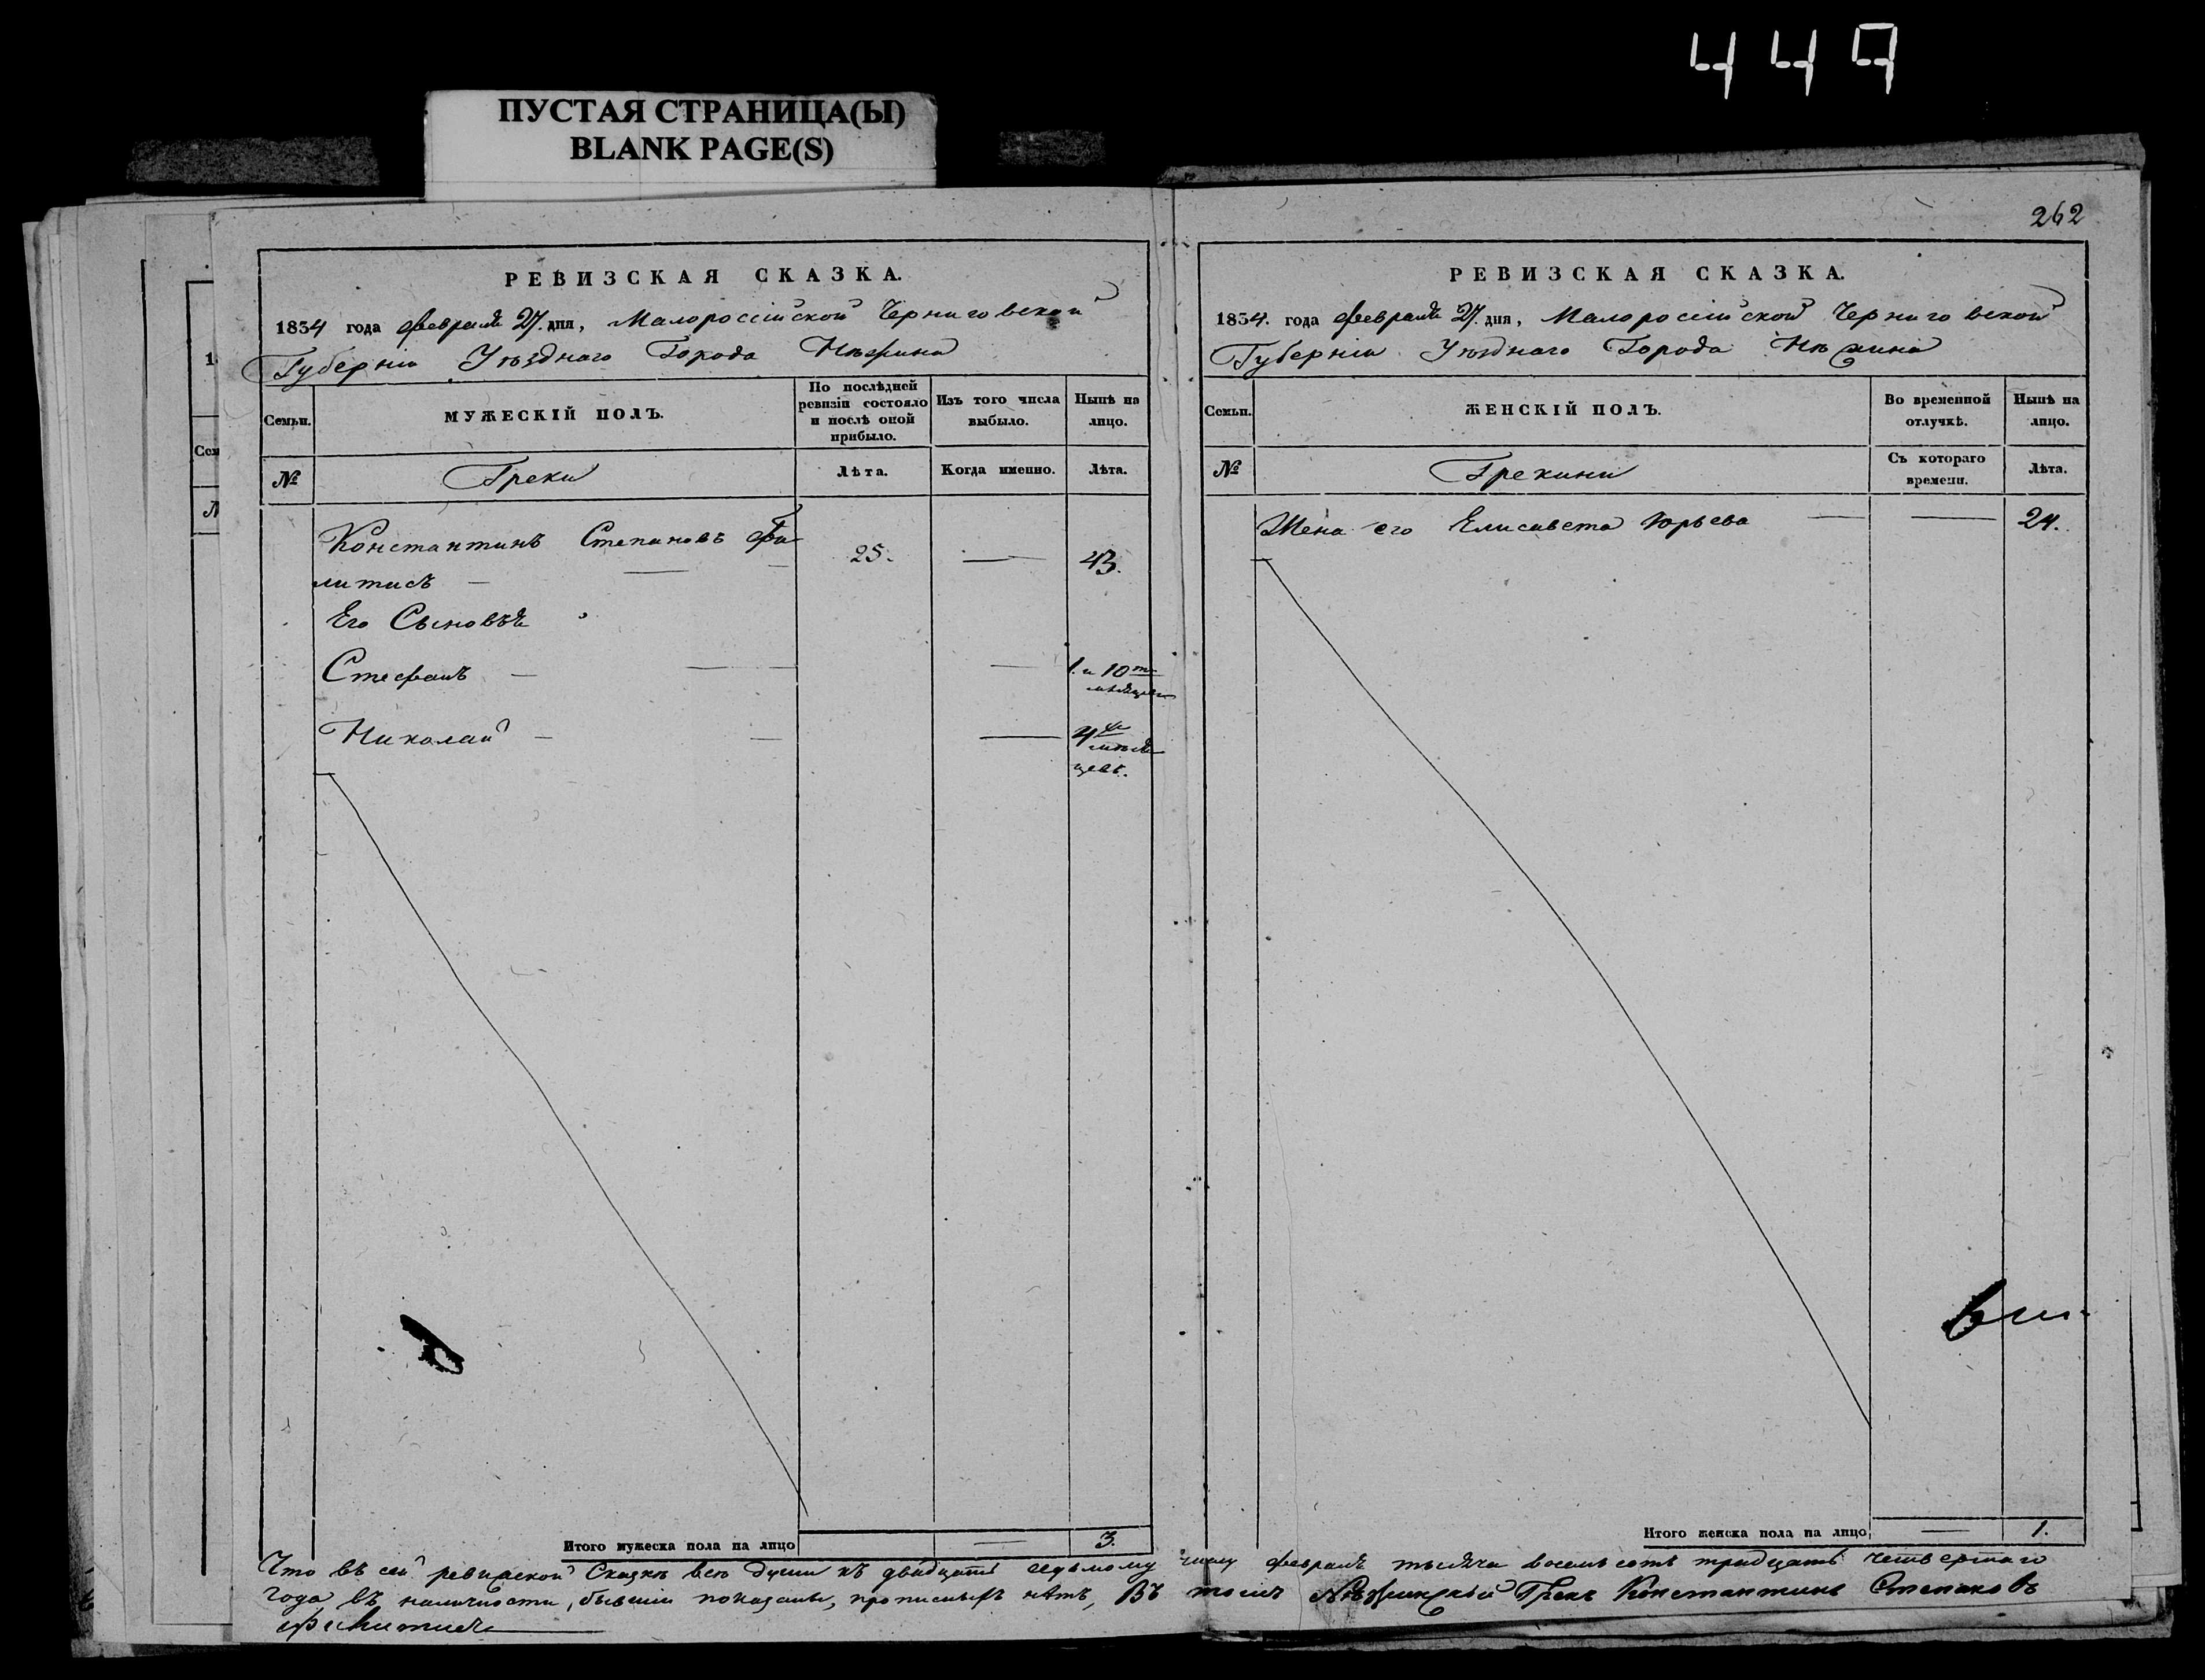 449
ПУСТАЯ СТРАНИЦА(Ы)
BLANK PAGE(S)
РЕВИЗСКАЯ СКАЗКА.
1834 года февраля 27. дня, Малороссійской Черниговской
Губерніи Уѣзднаго Города Нѣжина
Семьи.
МУЖЕСКІЙ ПОЛЪ.
По послѣдней ревизіи состояло и послѣ оной прибыло.
Изъ того числа выбыло.
Нынѣ на лицо.
№
Греки
Лѣта.
Когда именно.
Лѣта.
Константинъ Степановъ Фи
литисъ — 25. — 43.
Его Сыновья
Стефанъ — — — 1. и 10 ть
мѣсяцевъ
Николай — — — 4 ре
мѣся
цевъ.
Итого мужеска пола на лицо — 3.
262
РЕВИЗСКАЯ СКАЗКА.
1834. года февраля 27. дня, Малороссійской Черниговской
Губерніи Уѣзднаго Города Нѣжина
Семьи.
ЖЕНСКІЙ ПОЛЪ.
Во временной отлучкѣ.
Нынѣ на лицо.
№
Грекини
Съ котораго времени.
Лѣта.
Жена его Елисавета Юрьева — — 24.
Итого женска пола на лицо, — 1.
Что въ сей ревизской Сказкѣ всѣ души къ двадцать седьмому числу февраля тысяча восемь сотъ тридцать четвертаго
года въ наличности, бывшіи показаны, прописныхъ нѣтъ, Въ томъ Нѣжинскій Грекъ Константинъ Степановъ
Филитисъ